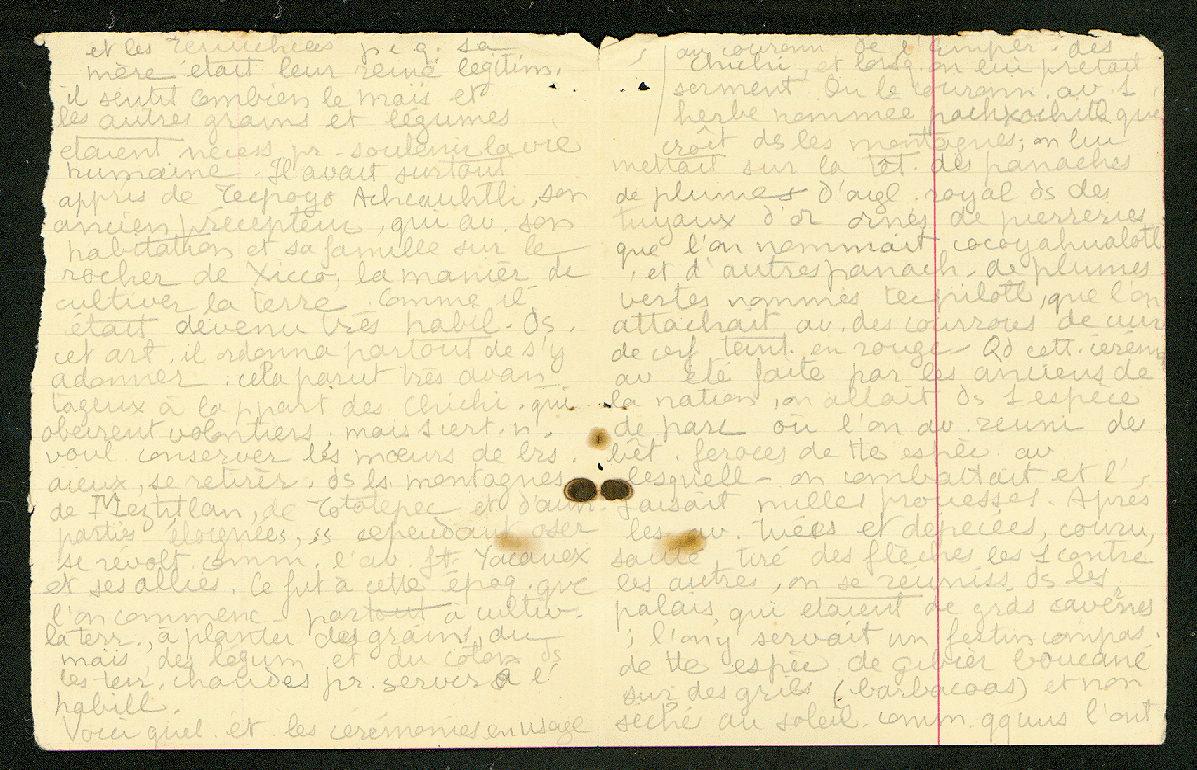 et les p.c.q. sa
mère était leur reine légitim.
il sentit combien le maïs et
les autres grains et légumes
étaient nécess pr. soutenir la vie
humaine. Il avait surtout
appris de Tecpoyo Achcauhtli, son
ancien précepteur, qui av. son
habitation et sa famille sur le
rocher de Xicco, la manièr de
cultiver la terre. Comme il
était devenu très habil. ds.
cet art, il ordonna partout de s'y
adonner cela parut très avan
tageux à la ppart des Chichi. qui
obéirent volontiers, mais s'cert. n'.
voul conserver les mœurs de lrs.
aieux, se retirèr. ds ls montagnes
de Meztitlan, de Tototepec et d'autr.
parties éloignées, ss cependant oser
se révolt. comm. l'av. ft. Yacanex
et ses alliés. Ce fut à cette époq. que
l'on commenc. partout à cultiv.
la terr., à planter des grains, du
maïs, des légum et du coton ds
les terr. chaudes pr. servir à l'
habill.
Voici quel. et les cérémonies en usage
au couronn de l'emper. des
Chichi, et lorsq. on lui prêtait
serment. On le couronn. av. 1
herbe nommée pachxochitl que
croît ds les montagnes; on lui
mettait sur la têt. des panaches
de plumes d'aigl. royal ds des
tuyaux d'or ornés de pierreries
que l'on nommait cocoyahualotl
, et d'autres panach. de plumes
vertes nommés tecpilotl, que l'on
attachait av. des courroies de cuir
de cerf teint. en rouge. Qd cett. cérém
av été faite par les anciens de
la nation, on allait ds 1 espèce
de parc où l'on av. réuni des
bêt. féroces de tte espèc av
lesquell. on combattait et l'
faisait milles prouesses. Après
les av. tuées et dépecées, couru,
sauté tiré des flèches les 1 contre
les autres, on se réuniss. ds les
palais, qui étaient de grds cavernes
; l'on y servait un festin compos.
de tte espèc de gibier boucané
sur des grils (barbacoas) et non
séché au soleil. comm. qquns l'ont